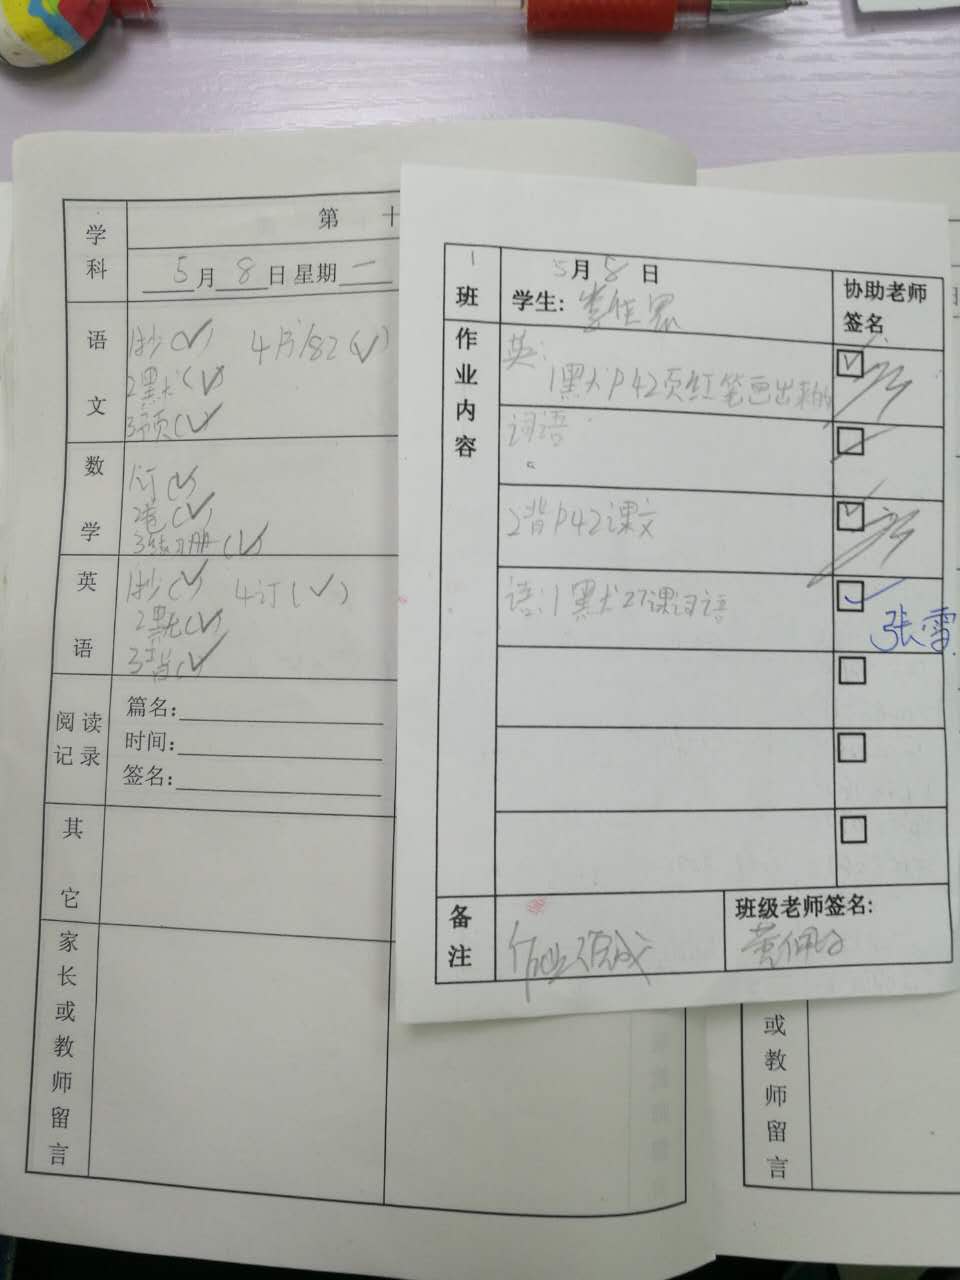 学科
第 十
5月8日 星期一
语文
1抄(✓) 4书182(✓)
2黑犬(✓)
3预(✓)
数学
1订(✓)
2卷(✓)
3练习册(✓)
英语
1抄(✓) 4订(✓)
2默(✓)
3背(✓)
阅读记录
篇名:
时间:
签名:
其它
家长或教师留言
1班
5月8日
学生:
协助老师签名
作业内容
英:
1黑犬P42页红笔画出来的
词语
2背P42课文
语:1黑犬27课词语
张雷
备注
班级老师签名:
或教师留言